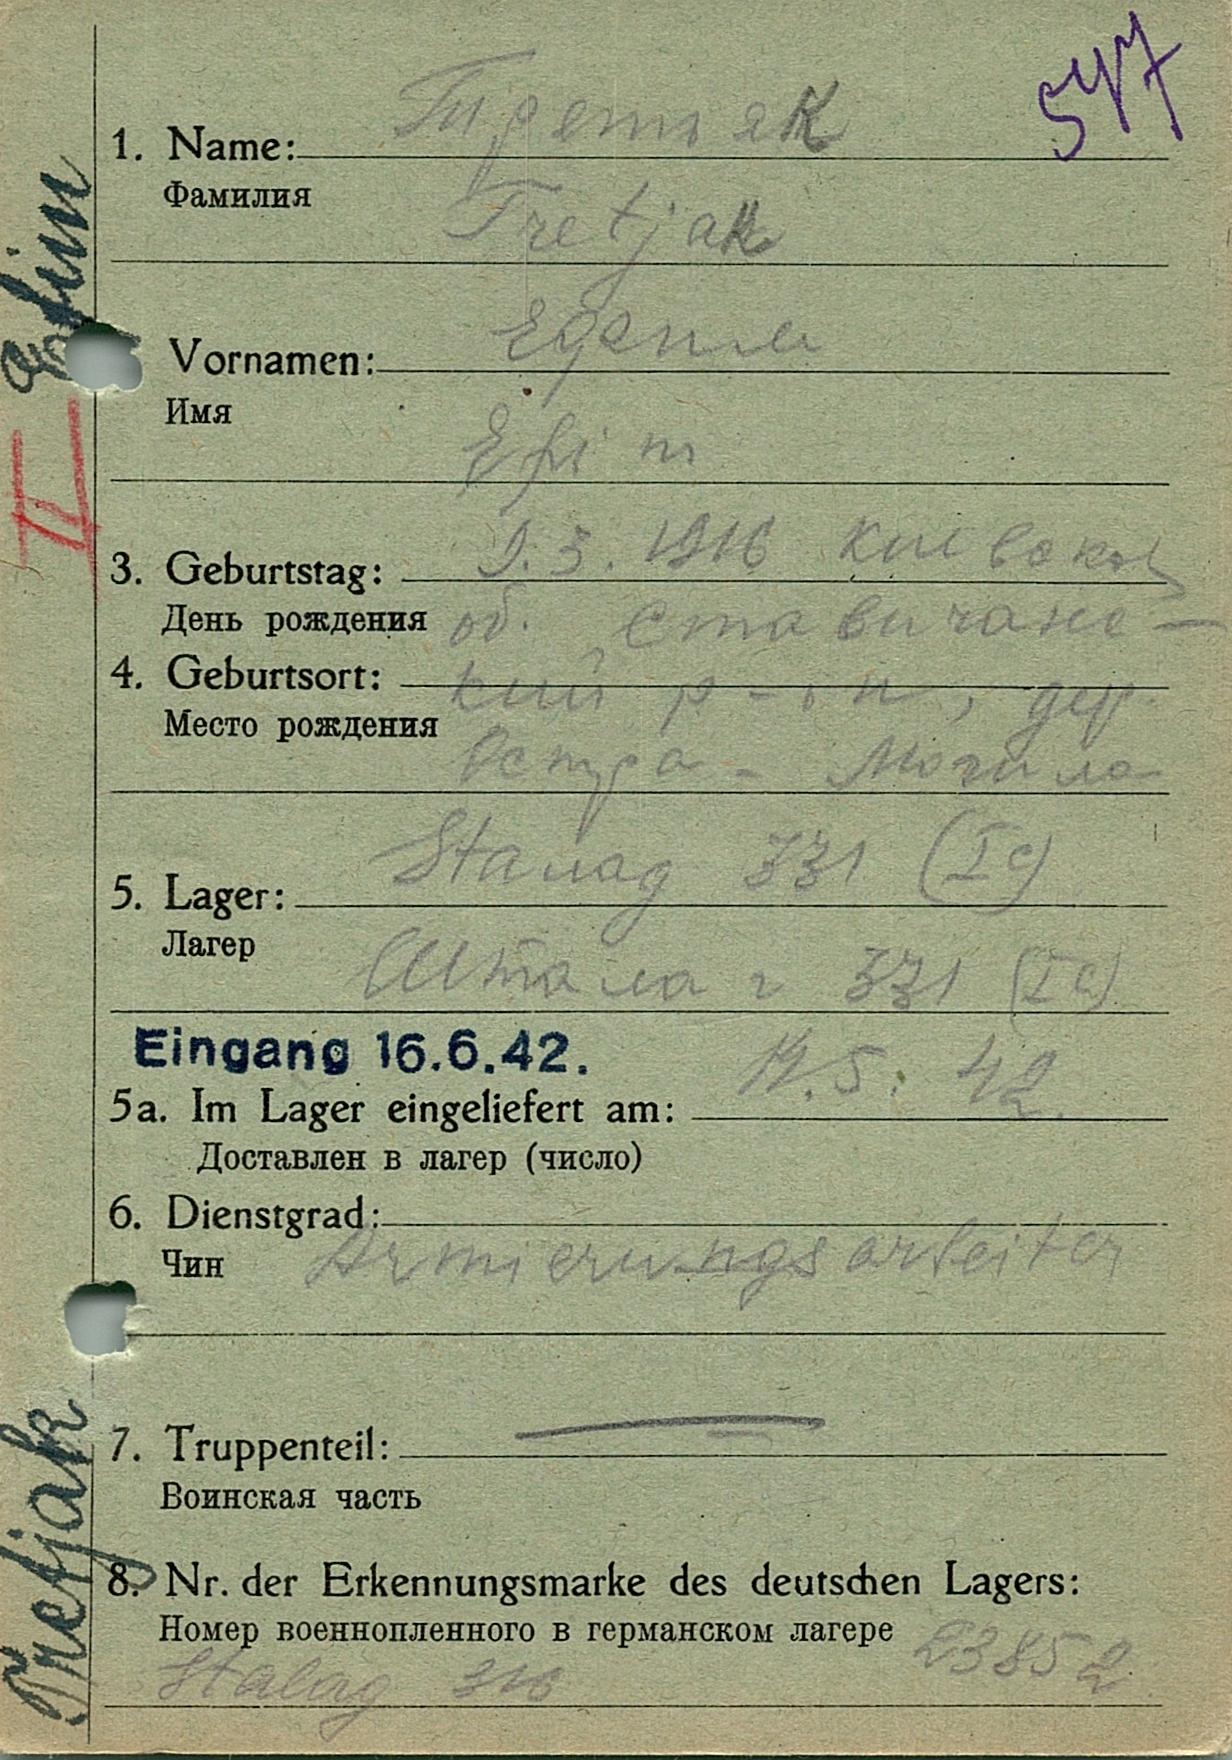 547
Третяк
1. Name:
Фамилия
Tretjak
Ефим
Vornamen:
Имя
Efim
3. Geburtstag: 9.3.1916 Киевской
День рождения об. Ставичанс-
4. Geburtsort: кий р-н, дер.
Место рождения
Востра-Могила
Stalag 331 (Ic)
5. Lager:
Лагер
Шталаг 331 (Ic)
Eingang 16.6.42.
5a. Im Lager eingeliefert am: 14.5.42.
Доставлен в лагер (число)
6. Dienstgrad:
Чин Armierungsarbeiter
7. Truppenteil:
Воинская часть
8. Nr. der Erkennungsmarke des deutschen Lagers:
Номер военнопленного в германском лагере 23852
Stalag 316
Tretjak Efim
II